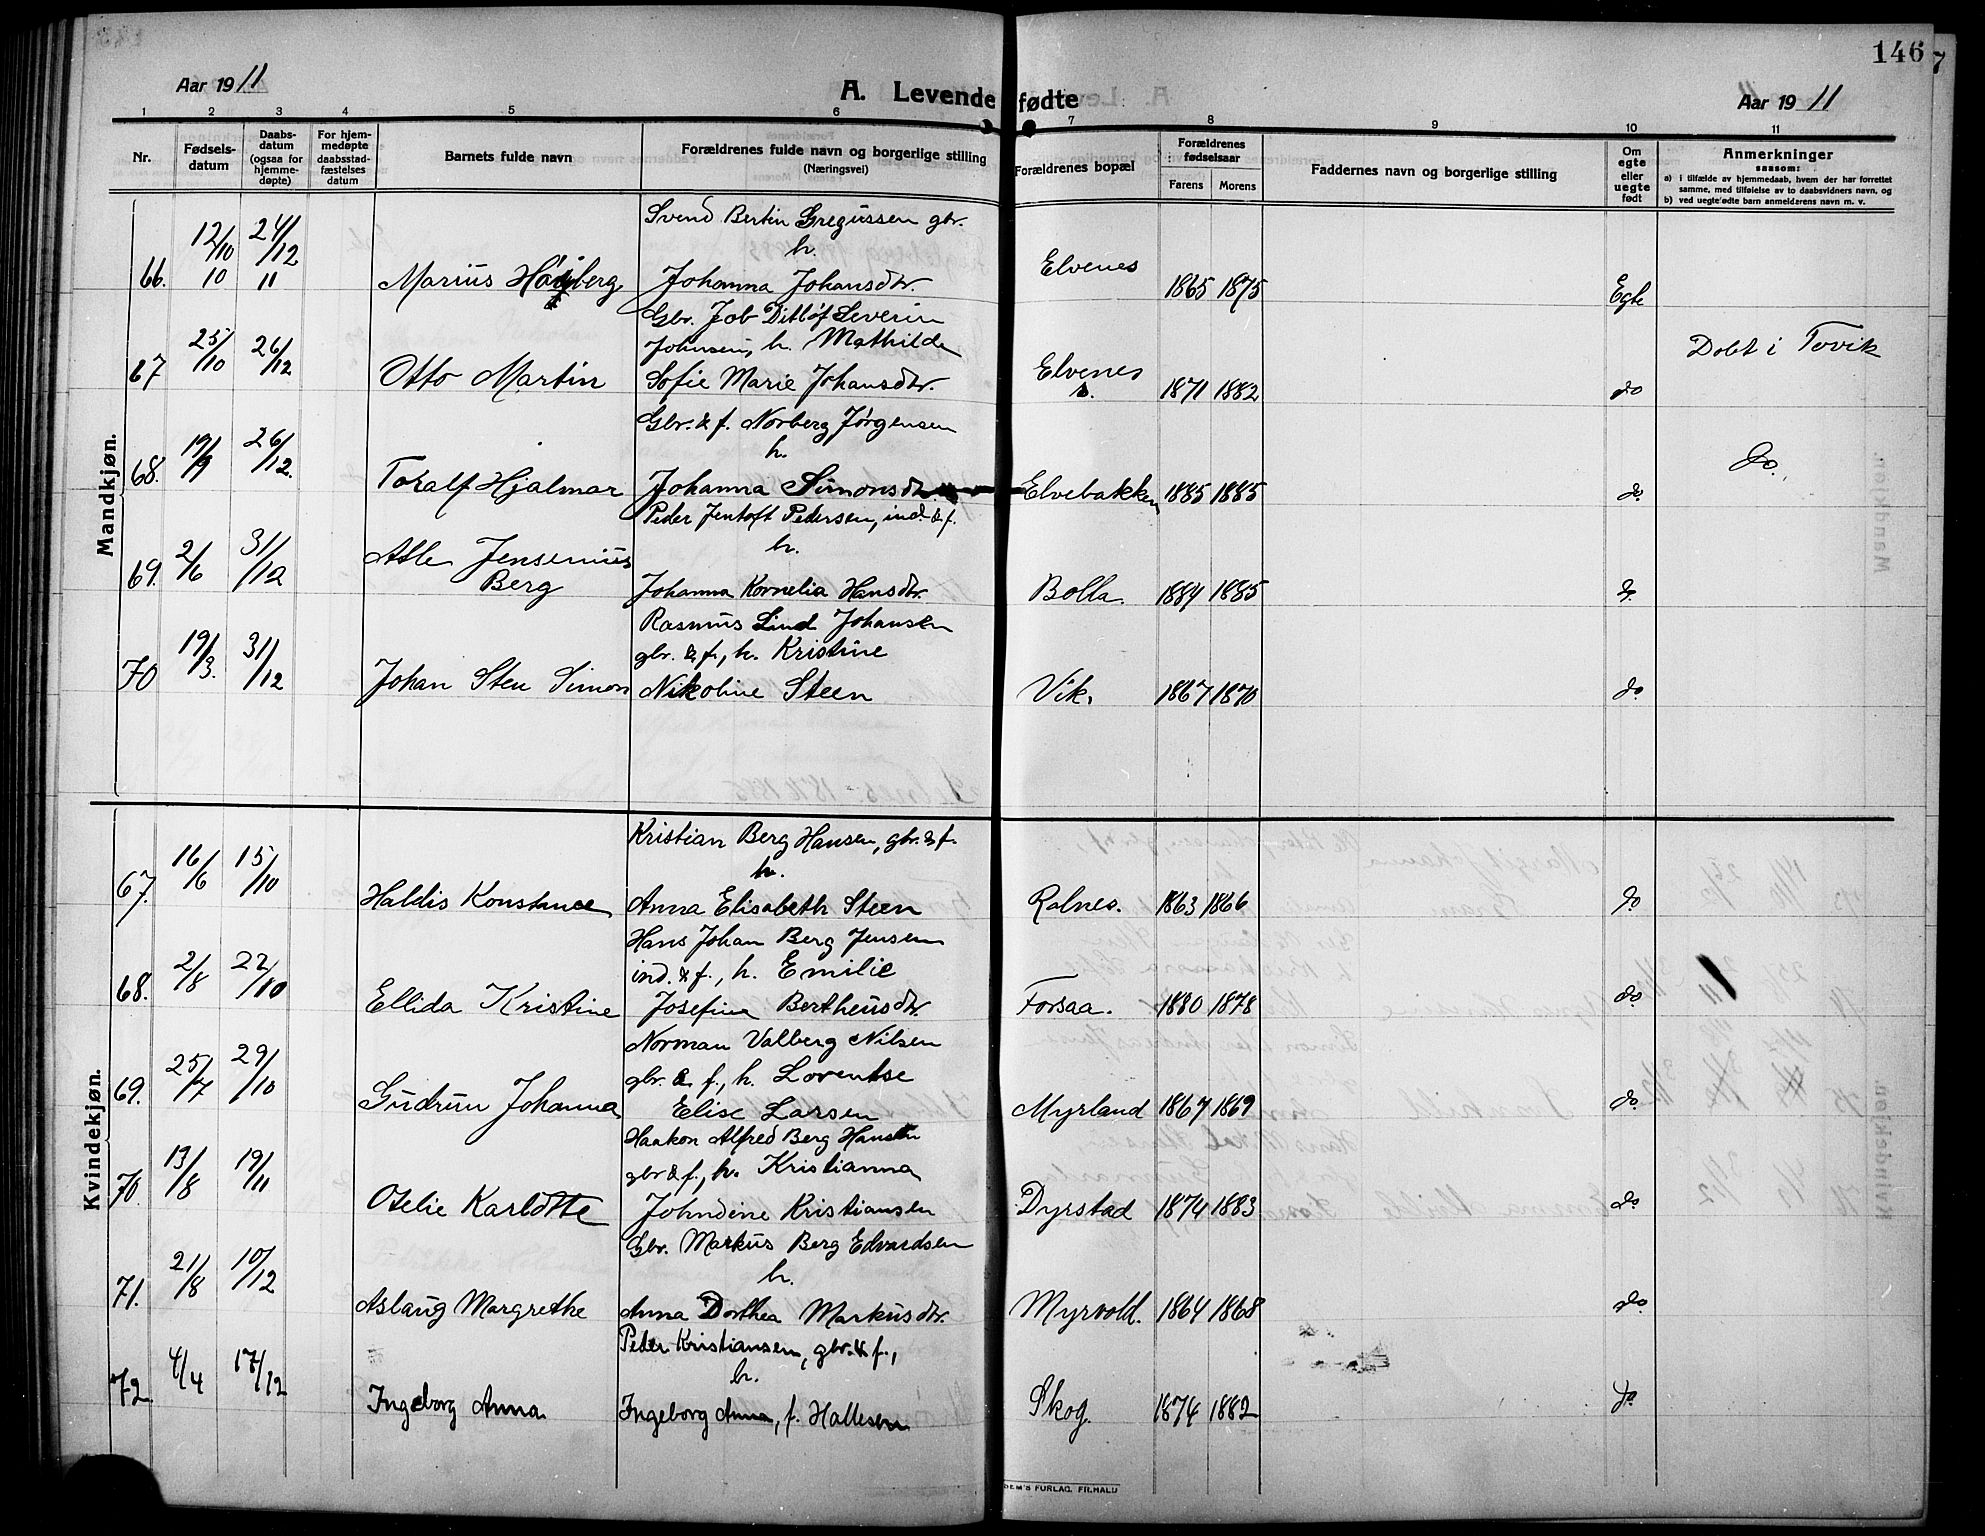 146
7
Aar 1911
A. Levendefødte
Aar 1911
1 2 3 4 5 6 7 8 9 10 11
Nr.
Fødsels-
datum
Daabs-
datum
(ogsaa for
hjemme-
døpte)
For hjem-
medøpte
daabsstad-
fæstelses
datum
Barnets fulde navn
Forældrenes fulde navn og borgerlige stilling
(Næringsvei)
Forældrenes bopæl
Forældrenes
fødselsaar
Farens Morens
Faddernes navn og borgerlige stilling
Om
egte
eller
uegte
født
Anmerkninger
saasom:
a) i tilfælde av hjemmedaab, hvem der har forrettet
samme, med tilføielse av to daabsvidners navn, og
b) ved uegte fødte barn anmelderens navn m. v.
Mandkjøn.
Svend Bertin Gregussen gbr.
12/10 24/12 h.
66. 10 11 Marius Høyberg Johanna Johansdtr. Elvenes 1865 1875 Egte
Gbr. Job Ditløf Severin
25/10 26/12 Johnsen, h. Mathilde
67 Otto Martin Sofie Marie Johansdtr. Elvenes s. 1871 1882 do Døbt i Tovik
Gbr. & f. Norberg Jørgensen
19/9 26/12. h.
68. Toralf Hjalmar Johanna Simonsdtr Elvebakken 1885 1885 do do.
Peder Jentoft Pedersen, ind. & f.
2/6 31/12 Atle Jensenius h.
69. Berg Johanna Kornelia Hansdtr. Bolla. 1884 1885 do.
Rasmus Lind Johansen
19/3. 31/12 gbr. & f., h. Kristine
70 Johan Sten Simon Nikoline Steen Vik. 1867 1870 do.
Kvindekjøn.
Kristian Berg Hansen, gbr. & f.
16/6 15/10 h.
67. Haldis Konstance Anna Elisabeth Steen Rolnes. 1863 1866 do
Hans Johan Berg Jensen
2/8 22/10 ind. & f., h. Emilie
68. Ellida Kristine Josefine Bertheusdtr. Forsaa. 1880 1878 do.
Norman Valberg Nilsen
25/7 29/10 gbr. & f., h. Lorentse
69. Gudrun Johanna Elise Larsen Myrland 1867 1869 do.
Haakon Alfred Berg Hansen
13/8 19/11 gbr & f., h. Kristianna
70. Otelie Karlotte Johndine Kristiansen Dyrstad 1874 1883 do.
Gbr. Markus Berg Edvardsen
21/8 10/12 h.
71. Aslaug Margrethe Anna Dorthea Markusdtr. Myrvold. 1864 1868 do.
Peder Kristiansen, gbr. & f.,
4/4 17/12 h.
72. Ingeborg Anna. Ingeborg Anna, f. Hallesen Skog. 1874 1882 do.
DEM'S FORLAG, FR.HALD